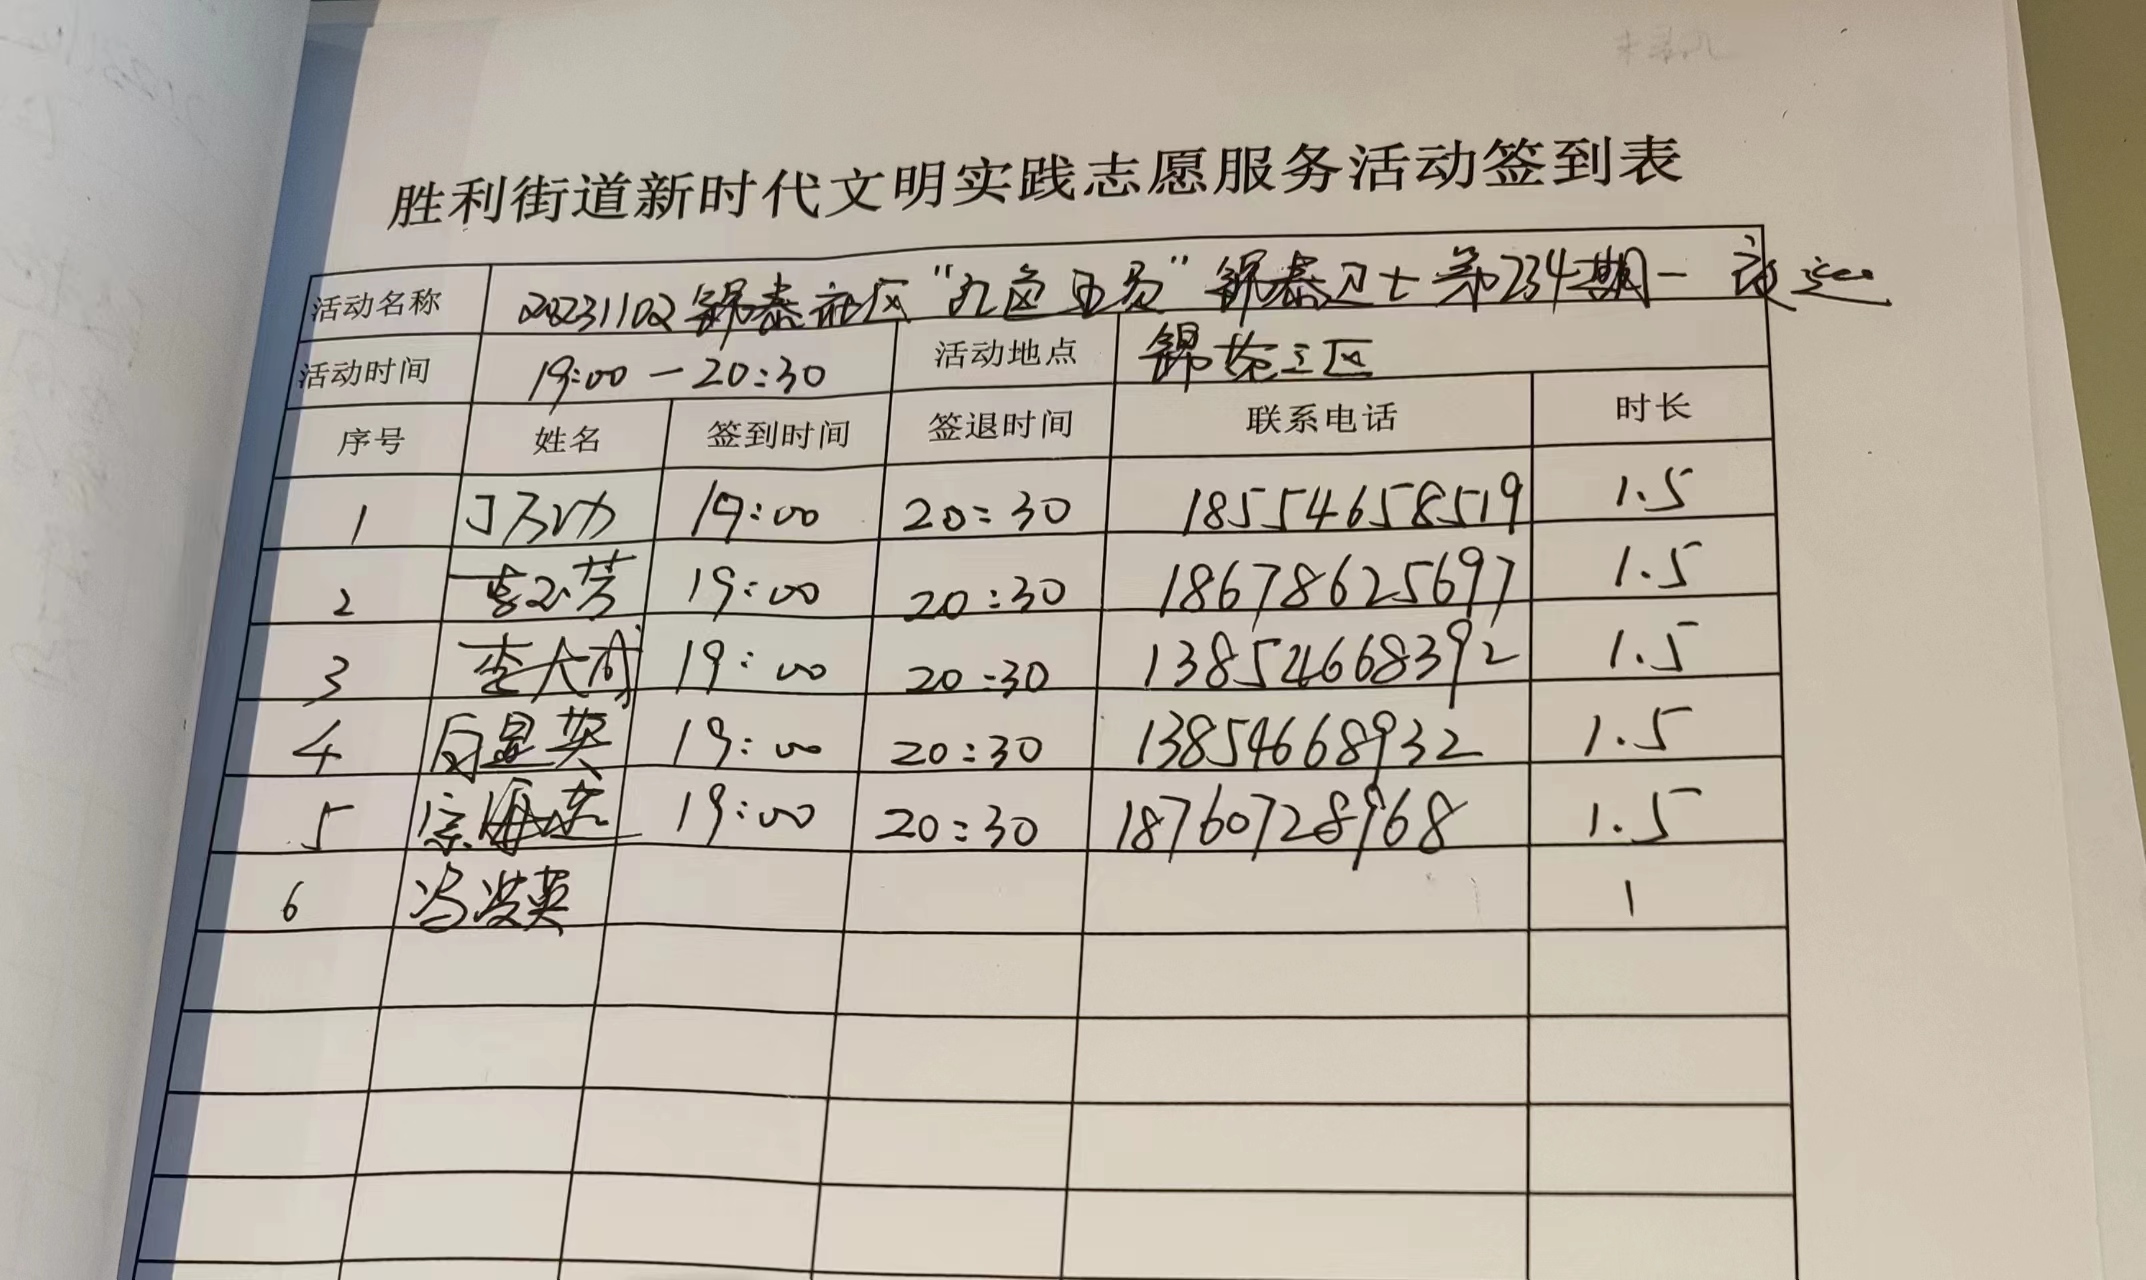 胜利街道新时代文明实践志愿服务活动签到表
活动名称 20231102锦泰社区"红色" 锦泰卫士第234期一夜巡
活动时间 19:00-20:30 活动地点 锦苑三区
序号 姓名 签到时间 签退时间 联系电话 时长
1 19:00 20:30 18554658519 1.5
2 李玉芳 19:00 20:30 18678625697 1.5
3 李大成 19:00 20:30 13854668392 1.5
4 显英 19:00 20:30 13854668932 1.5
5 宗海燕 19:00 20:30 18760728968 1.5
6 冯英 1